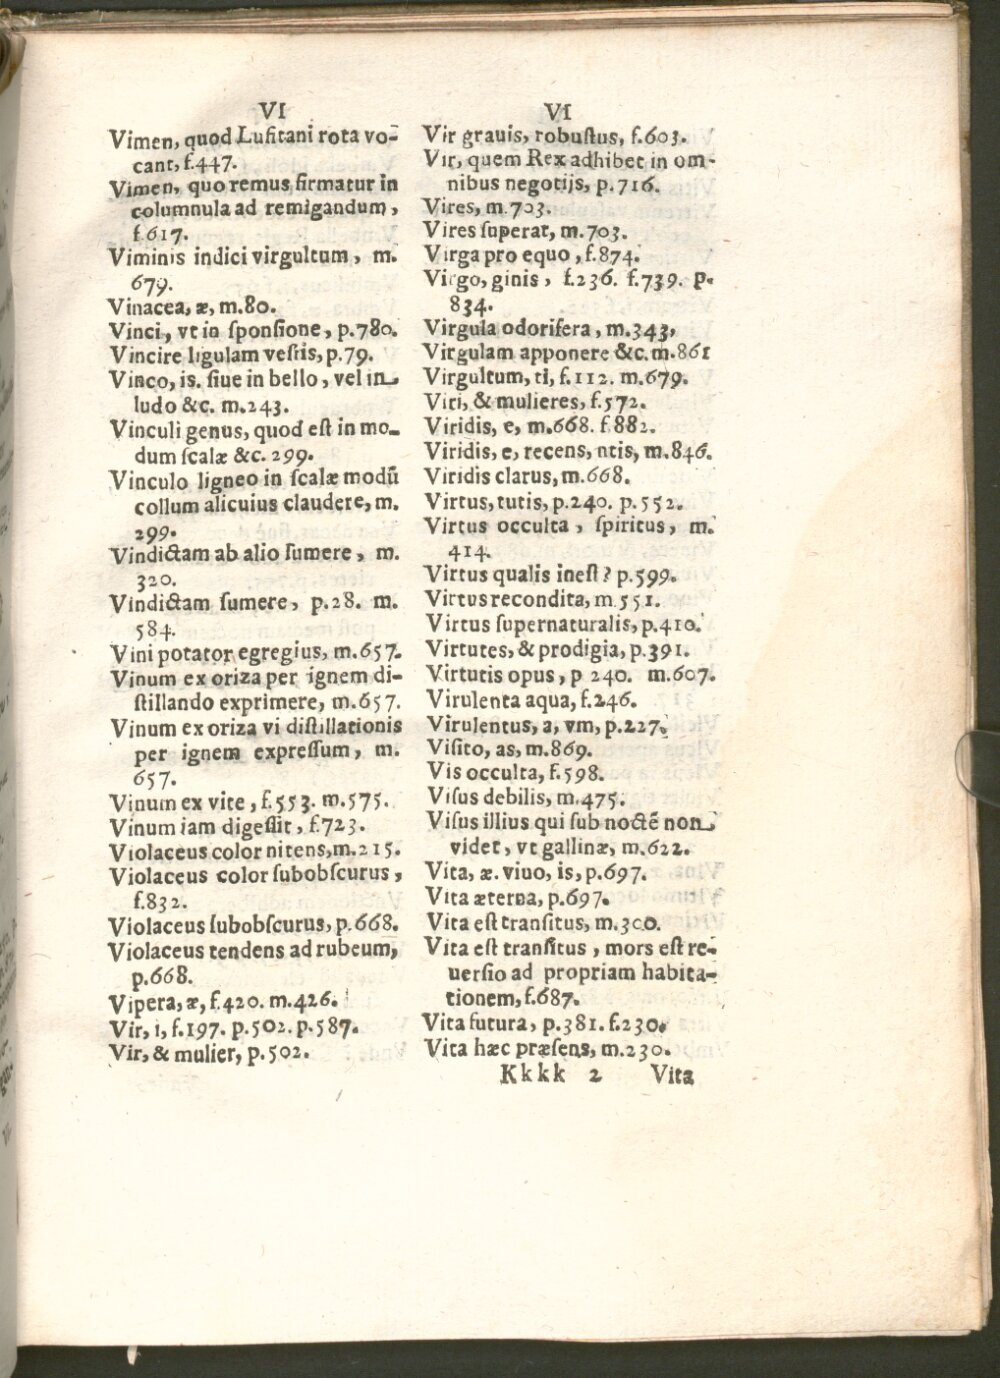 VI
Vimen, quod Luſitani rota vo-
cant, f.447.
Vimen, quo remus firmatur in
columnula ad remigandum,
f.617.
Viminis indici virgultum, m.
679.
Vinacea, æ, m.80.
Vinci, vt in ſponſione, p.780.
Vincire ligulam veſtis, p.79.
Vinco, is. ſiue in bello, vel in
ludo &c. m.243.
Vinculi genus, quod eſt in mo-
dum ſcalæ &c. 299.
Vinculo ligneo in ſcalæ modũ
collum alicuius claudere, m.
299.
Vindictam ab alio ſumere, m.
320.
Vindictam ſumere, p.28. m.
584.
Vini potator egregius, m.657.
Vinum ex oriza per ignem di-
ſtillando exprimere, m.657.
Vinum ex oriza vi diſtillationis
per ignem expreſſum, m.
657.
Vinum ex vite, f.553. m.575.
Vinum iam digeſſit, f.723.
Violaceus color nitens, m.215.
Violaceus color ſubobſcurus,
f.832.
Violaceus ſubobſcurus, p.668.
Violaceus tendens ad rubeum,
p.668.
Vipera, æ, f.420. m.426.
Vir, i, f.197. p.502. p.587.
Vir, & mulier, p.502.
VI
Vir grauis, robuſtus, f.603.
Vir, quem Rex adhibet in om-
nibus negotijs, p.716.
Vires, m.703.
Vires ſuperat, m.703.
Virga pro equo, f.874.
Virgo, ginis, f.236. f.739. p.
834.
Virgula odorifera, m.343,
Virgulam apponere &c. m.861
Virgultum, ti, f.112. m.679.
Viri, & mulieres, f.572.
Viridis, e, m.668. f.882.
Viridis, e, recens, ntis, m.846.
Viridis clarus, m.668.
Virtus, tutis, p.240. p.552.
Virtus occulta, ſpiritus, m.
414.
Virtus qualis ineſt? p.599.
Virtus recondita, m 551.
Virtus ſupernaturalis, p.410.
Virtutes, & prodigia, p.391.
Virtutis opus, p 240. m.607.
Virulenta aqua, f.246.
Virulentus, a, vm, p.227.
Viſito, as, m.869.
Vis occulta, f.598.
Viſus debilis, m.475.
Viſus illius qui ſub noctẽ non
videt, vt gallinæ, m.622.
Vita, æ. viuo, is, p.697.
Vita æterna, p.697.
Vita eſt tranſitus, m.300.
Vita eſt tranſitus, mors eſt re-
uerſio ad propriam habita-
tionem, f.687.
Vita futura, p.381. f.230.
Vita hæc præſens, m.230.
Kkkk 2 Vita